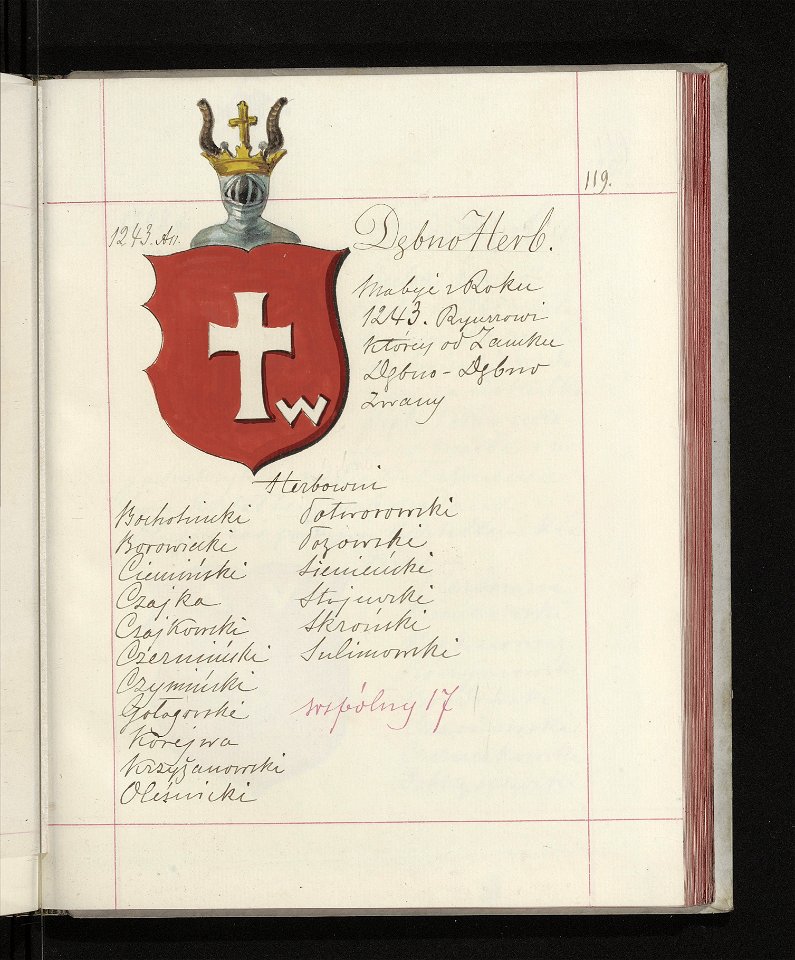 119.
1243. An.
Dębno Herb.
Nabyć z Roku
1243. Ryurrowi
który od Zamku
Dębno - Dębno
zwany
W
Herbowni
Bochotnicki
Borowicki
Ciemiński
Czajka
Czajkowski
Czermiński
Czymiński
Gołogorski
Korejwa
Krzyżanowski
Oleśnicki
Potworowski
Pozowski
Sienieńcki
Stojewski
Skroński
Sulimowski
wspólny 17